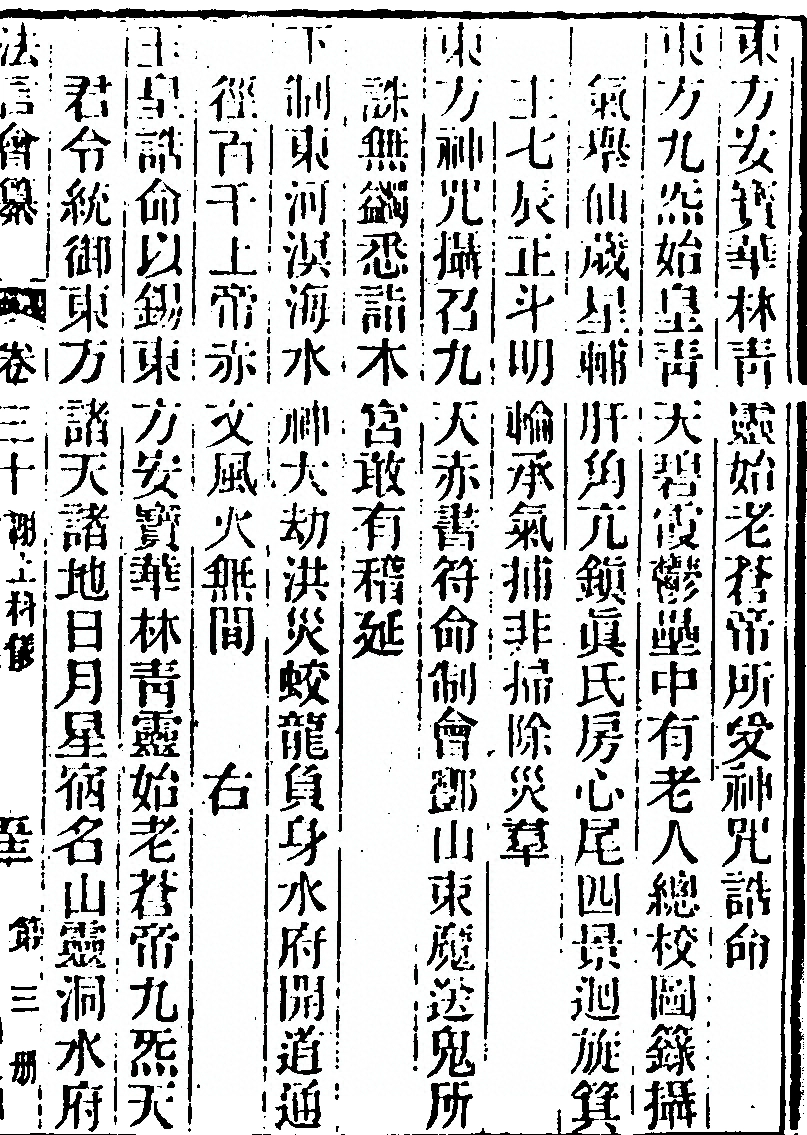 東方安寶華林靑靈始老蒼帝所受神咒誥命
東方九炁始皇靑天碧霞鬱壘中有老人總校圖籙攝
氣舉仙歲星輔肝角亢鎭眞氐房心尾四景迴旋箕
主七辰正斗明輪承氣捕非掃除災羣
東方神咒攝召九天赤書符命制會酆山東魔送鬼所
誅無蠲悉詣木宮敢有稽延
下制東河溟海水神大劫洪災蛟龍負身水府開道通
徑百千上帝赤文風火無間　右
玉皇誥命以錫東方安寶華林靑靈始老蒼帝九炁天
君令統御東方諸天諸地日月星宿名山靈洞水府
法言會纂　卷三十　謝土科儀　第三册